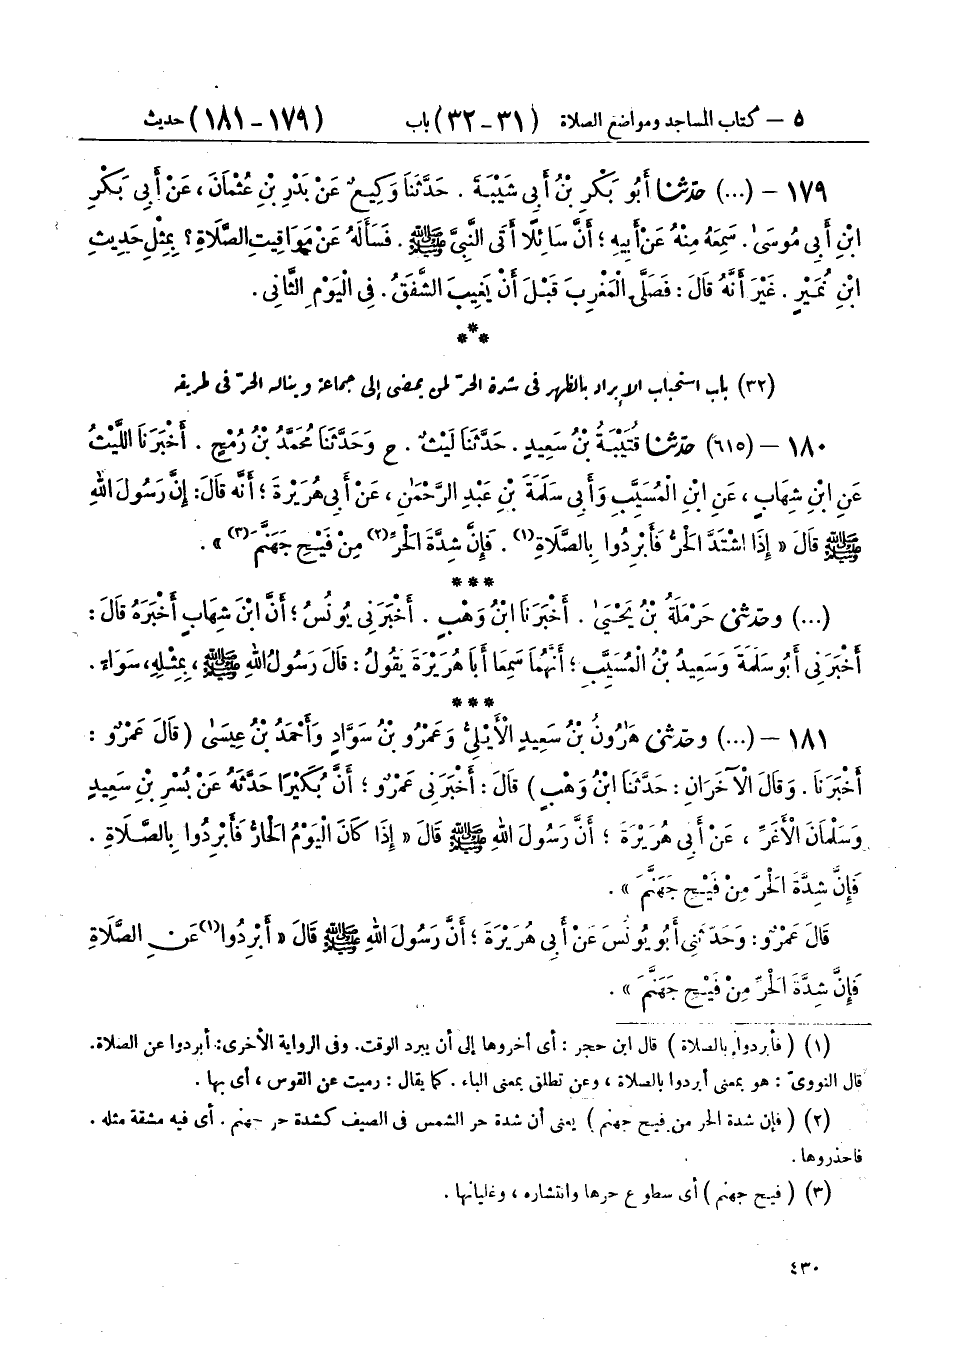 ٥ – كتاب المساجد ومواضع الصلاة (٣١-٣٢) باب (١٧٩-١٨١) حديث
١٧٩ – (...) حدّثنا أَبُو بَكْرِ بْنُ أَبِي شَيْبَةَ . حَدَّثَنَا وَكِيعٌ عَنْ بَدْرِ بْنِ عُثْمَانَ ، عَنْ أَبِي بَكْرِ
ابْنِ أَبِي مُوسَىٰ . سَمِعَهُ مِنْهُ عَنْ أَبِيهِ ؛ أَنَّ سَائِلًا أَتَى النَّبِيَّ ﷺ . فَسَأَلَهُ عَنْ مَوَاقِيتِ الصَّلَاةِ ؟ بِمِثْلِ حَدِيثِ
ابْنِ نُمَيْرٍ . غَيْرَ أَنَّهُ قَالَ : فَصَلَّى الْمَغْرِبَ قَبْلَ أَنْ يَغِيبَ الشَّفَقُ . فِي الْيَوْمِ الثَّانِي .
***
(٣٢) باب استحباب الإبراد بالظهر فى شدة الحرّ لمن يمضى إلى جماعة ويناله الحرّ فى طريقه
١٨٠ – (٦١٥) حدّثنا قُتَيْبَةُ بْنُ سَعِيدٍ . حَدَّثَنَا لَيْثٌ . ح وَحَدَّثَنَا مُحَمَّدُ بْنُ رُمْحٍ . أَخْبَرَنَا اللَّيْثُ
عَنِ ابْنِ شِهَابٍ ، عَنِ ابْنِ الْمُسَيَّبِ وَأَبِي سَلَمَةَ بْنِ عَبْدِ الرَّحْمَٰنِ ، عَنْ أَبِي هُرَيْرَةَ ؛ أَنَّهُ قَالَ : إِنَّ رَسُولَ اللهِ
ﷺ قَالَ « إِذَا اشْتَدَّ الْحَرُّ فَأَبْرِدُوا بِالصَّلَاةِ(١) . فَإِنَّ شِدَّةَ الْحَرِّ(٢) مِنْ فَيْحِ جَهَنَّمَ(٣) » .
***
(...) وحدّثنى حَرْمَلَةُ بْنُ يَحْيَىٰ . أَخْبَرَنَا ابْنُ وَهْبٍ . أَخْبَرَنِي يُونُسُ ؛ أَنَّ ابْنَ شِهَابٍ أَخْبَرَهُ قَالَ :
أَخْبَرَنِي أَبُو سَلَمَةَ وَسَعِيدُ بْنُ الْمُسَيَّبِ ؛ أَنَّهُمَا سَمِعَا أَبَا هُرَيْرَةَ يَقُولُ : قَالَ رَسُولُ اللهِ ﷺ ، بِمِثْلِهِ ، سَوَاءً .
***
١٨١ – (...) وحدّثنى هَارُونُ بْنُ سَعِيدٍ الْأَيْلِيُّ وَعَمْرُو بْنُ سَوَّادٍ وَأَحْمَدُ بْنُ عِيسَىٰ ( قَالَ عَمْرٌو :
أَخْبَرَنَا . وَقَالَ الْآخَرَانِ : حَدَّثَنَا ابْنُ وَهْبٍ ) قَالَ : أَخْبَرَنِي عَمْرٌو ؛ أَنَّ بُكَيْرًا حَدَّثَهُ عَنْ بُسْرِ بْنِ سَعِيدٍ
وَسَلْمَانَ الْأَغَرِّ ، عَنْ أَبِي هُرَيْرَةَ ؛ أَنَّ رَسُولَ اللهِ ﷺ قَالَ « إِذَا كَانَ الْيَوْمُ الْحَارُّ فَأَبْرِدُوا بِالصَّلَاةِ .
فَإِنَّ شِدَّةَ الْحَرِّ مِنْ فَيْحِ جَهَنَّمَ » .
قَالَ عَمْرٌو : وَحَدَّثَنِي أَبُو يُونُسَ عَنْ أَبِي هُرَيْرَةَ ؛ أَنَّ رَسُولَ اللهِ ﷺ قَالَ « أَبْرِدُوا(١) عَنِ الصَّلَاةِ
فَإِنَّ شِدَّةَ الْحَرِّ مِنْ فَيْحِ جَهَنَّمَ » .
(١) ( فأبردوا بالصلاة ) قال ابن حجر : أى أخروها إلى أن يبرد الوقت. وفى الرواية الأخرى: أبردوا عن الصلاة.
قال النووىّ : هو بمعنى أبردوا بالصلاة ، وعن تطلق بمعنى الباء . كما يقال : رميت عن القوس ، أى بها .
(٢) ( فإن شدة الحر من فيح جهنم ) يعنى أن شدة حر الشمس فى الصيف كشدة حر جهنم . أى فيه مشقة مثله .
فاحذروها .
(٣) ( فيح جهنم ) أى سطوع حرها وانتشاره ، وغليانها .
٤٣٠